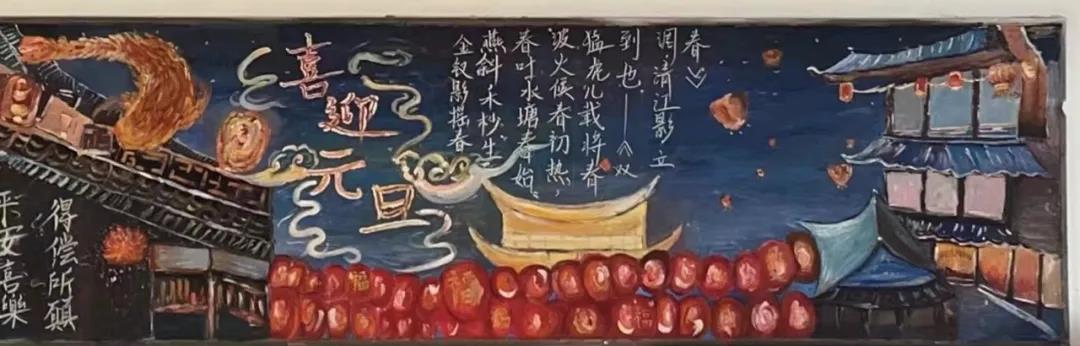 喜迎元旦
金钗影摇春
燕斜禾杪生
春叶水塘春始。
波火候春初热,
猛虎儿载将春
到也——《双
调清江影立
春》
平安喜樂
得偿所願
福
福
福